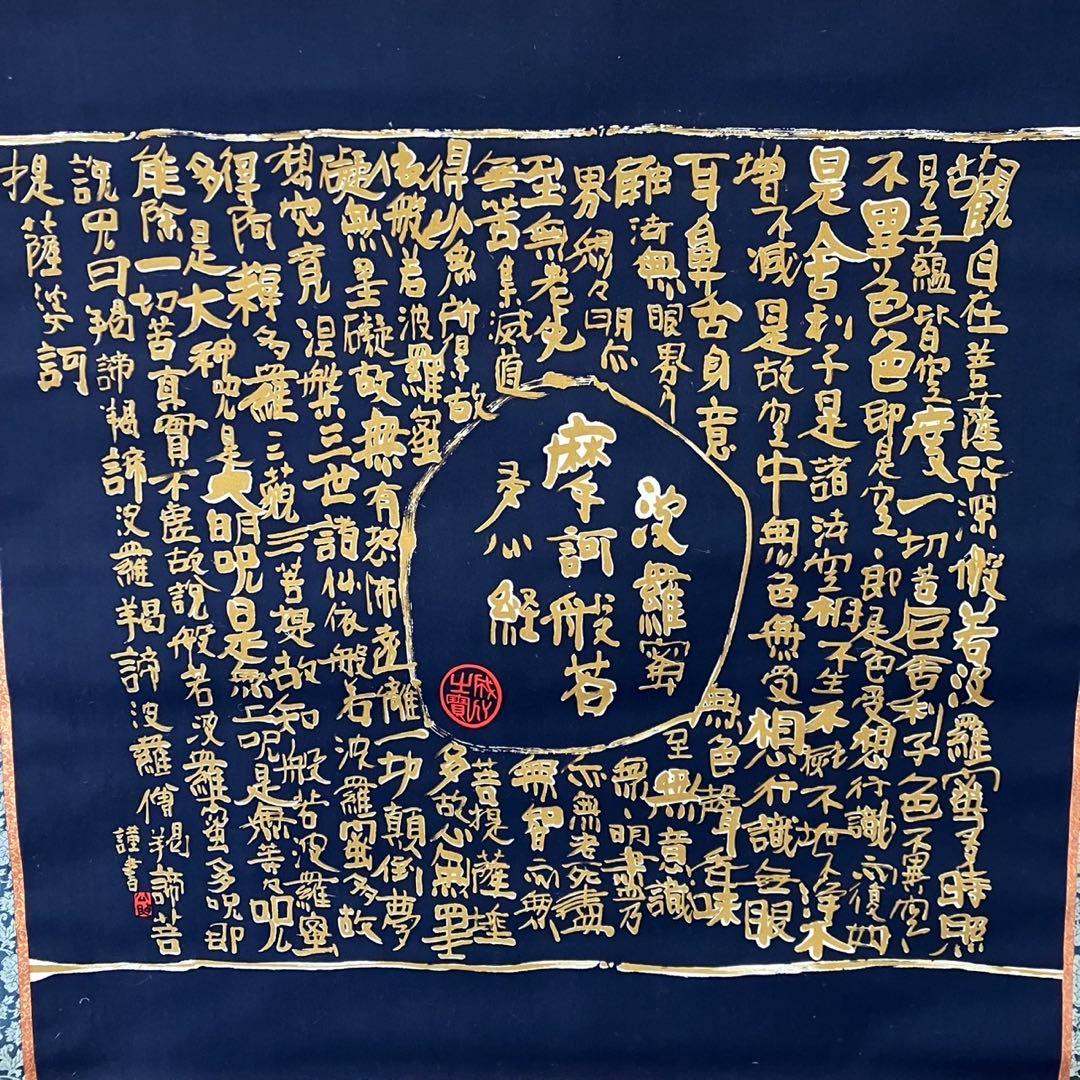 観自在菩薩行深般若波羅蜜多時照
見五蘊皆空度一切苦厄舎利子色不異空
不異色色即是空即是色受想行識亦復如
是舎利子是諸法空相不生不滅不垢不浄不
増不減是故空中無色無受想行識無眼
耳鼻舌身意
無色声耳香味
触法無眼界乃
至無意識
界無無明亦
無無明尽乃
至無老死
亦無老死尽
無苦集滅道
無智亦無
得以無所得故
菩提薩埵
依般若波羅蜜
多故心無罣
礙無罣礙故無有恐怖遠離一切顛倒夢
想究竟涅槃三世諸仏依般若波羅蜜多故
得阿耨多羅三藐三菩提故知般若波羅蜜
多是大神呪是大明呪是無上呪是無等々呪
能除一切苦真實不虚故説般若波羅蜜多呪即
説呪曰羯諦羯諦波羅羯諦波羅僧羯諦菩
提薩婆訶
謹書
波羅蜜
摩訶般若
多心経